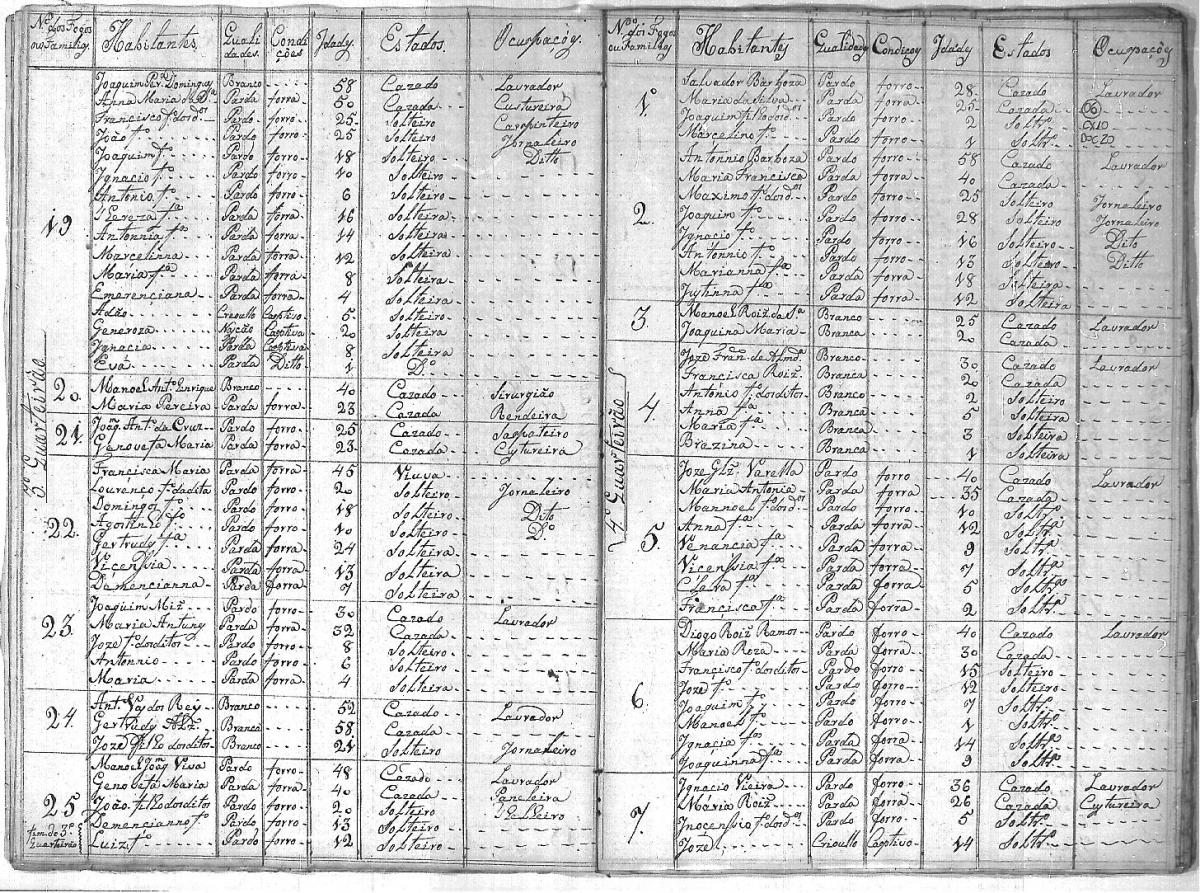 Nos. dos Fogos ou Familias. Habitantes. Qualidades. Condições Idades. Estados. Ocupaçoẽs.
3º Quarteirão
19
Joaquim Per.ª Domingues Branco 58 Cazado Lavrador
Anna Maria Parda forra 50 Cazada Custureira
Francisco fº. dos dos Pardo forro 25 Solteiro Carpinteiro
João fº. Pardo forro 25 Solteiro Jornaleiro
Joaquim fº. Pardo forro 18 Solteiro Ditto
Ignacio fº. Pardo forro 10 Solteiro
Antonio fº. Pardo forro 6 Solteiro
Tereza fª. Parda forra 16 Solteira
Antonnia fª. Parda forra 14 Solteira
Marcelinna Parda forra 12 Solteira
Maria fª. Parda forra 8 Solteira
Emerenciana Parda forra 4 Solteira
Adão Creoullo Captivo 5 Solteiro
Generoza Nação Captiva 20 Solteira
Ignacia Parda Captiva 8 Solteira
Eva Parda Ditto 1 Dº.
20
Manoel Antº. Enrique Branco 40 Cazado Sirurgião
Maria Pereira Parda forra 23 Cazada Rendeira
21
João Antº. da Cruz Pardo forro 25 Cazado Sappateiro
Genovefa Maria Parda forra 23 Cazada Custureira
22
Francisca Maria Parda forra 45 Viuva
Lourenço fº. da dita Pardo forro 20 Solteiro Jornaleiro
Domingos fº. Pardo forro 18 Solteiro Dito
Agostinho fº. Pardo forro 10 Solteiro Dº.
Gertrudes fª. Parda forra 24 Solteira
Vicenssia Parda forra 13 Solteira
Demencianna Parda forra 7 Solteira
23
Joaquim Miz Pardo forro 30 Cazado Lavrador
Maria Antunes Parda forra 32 Cazada
Joze fº. dos ditos Pardo forro 8 Solteiro
Antonnio Pardo forro 6 Solteiro
Maria Parda forra 4 Solteira
24
Antº. dos Reys Branco 52 Cazado Lavrador
Gertrudes Branca 58 Cazada
Joze filho dos ditos Branco 21 Solteiro Jornaleiro
25
Manoel Joaqm. Viva Pardo forro 48 Cazado Lavrador
Genovefa Maria Parda forra 40 Cazada Paneleira
João filho dos ditos Pardo forro 20 Solteiro
Demencianno fº. Pardo forro 13 Solteiro
Luiz fº. Pardo forro 12 Solteiro
fim do 3º. Quarteirão
Nos. dos Fogos ou Familias Habitantes Qualidades Condiçoes Idades Estados Ocupaçoẽs
4º Quarteirão
1º
Salvador Barboza Pardo forro 28 Cazado Lavrador
Maria da Silva Parda forra 25 Cazada
Joaquim filho dos Pardo forro 2 Soltrº.
Marcelino fº. Pardo forro 1 Soltrº.
2.
Antonnio Barboza Pardo forro 58 Cazado Lavrador
Maria Francisca Parda forra 40 Cazada
Maximo fº. dos dos Pardo forro 25 Solteiro Jornaleiro
Joaquim fº. Pardo forro 28 Solteiro Jornaleiro
Ignacio fº. Pardo forro 16 Solteiro Dito
Antonnio fº. Pardo forro 13 Solteiro Ditto
Marianna fª. Parda forra 18 Solteira
Justinna fª. Parda forra 12 Solteira
3.
Manoel Roiz da Sª. Branco 25 Cazado Lavrador
Joaquina Maria Branca 20 Cazada
4
Joze Fran. de Almdª. Branco 30 Cazado Lavrador
Francisca Roiz Branca 20 Cazada
Antonio fº. dos ditos Branco 2 Solteiro
Anna fª. Branca 5 Solteira
Maria fª. Branca 3 Solteira
Brazina Branca 1 Solteira
5.
Joze Glz Varella Pardo forro 40 Cazado Lavrador
Maria Antonia Parda forra 35 Cazada
Mannoel fº. dos dos Pardo forro 10 Soltrº.
Anna fª. Parda forra 12 Soltrª.
Venancia fª. Parda forra 9 Soltrª.
Vicenssia fª. Parda forra 7 Soltrª.
Clara fª. Parda forra 5 Soltrª.
Francisca fª. Parda forra 2 Soltrª.
6.
Diogo Roiz Ramos Pardo forro 40 Cazado Lavrador
Maria Roza Parda forra 30 Cazada
Francisco fº. dos ditos Pardo forro 15 Solteiro
Joze fº. Pardo forro 12 Solteiro
Joaquim fº. Pardo forro 7 Solteiro
Manoel fº. Pardo forro 1 Soltrº.
Ignacia fª. Parda forra 14 Soltrª.
Joaquinna fª. Parda forra 9 Soltrª.
7.
Ignacio Vieira Pardo forro 36 Cazado Lavrador
Maria Roiz Parda forra 26 Cazada Custureira
Inocenssio fº. dos dos Pardo forro 5 Soltrº.
Joze Crioullo Captivo 14 Soltrº.